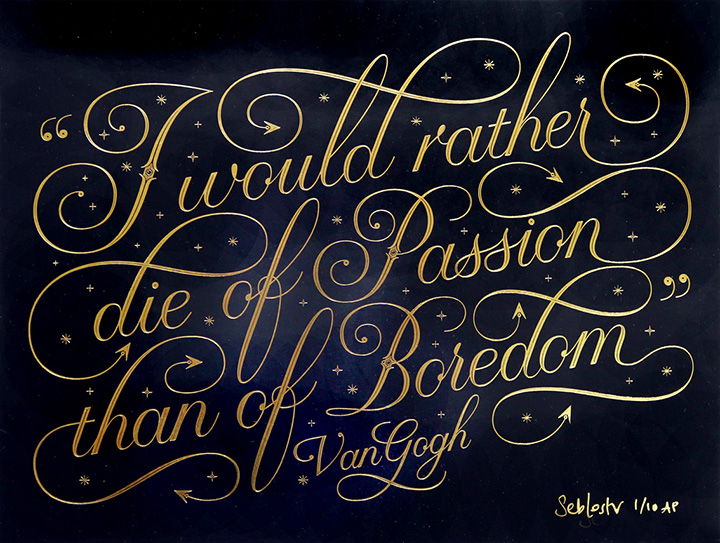 “ I would rather
die of Passion
than of Boredom ”
Van Gogh
Seb Lester 1/10 AP